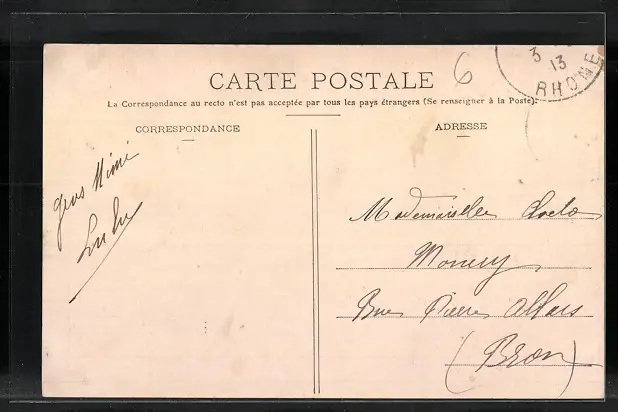 CARTE POSTALE
6
3
13
RHONE
La Correspondance au recto n'est pas acceptée par tous les pays étrangers (Se renseigner à la Poste).
CORRESPONDANCE
ADRESSE
gros Mimi
Lulu
Mademoiselle
Rue Pierre
(Bron)